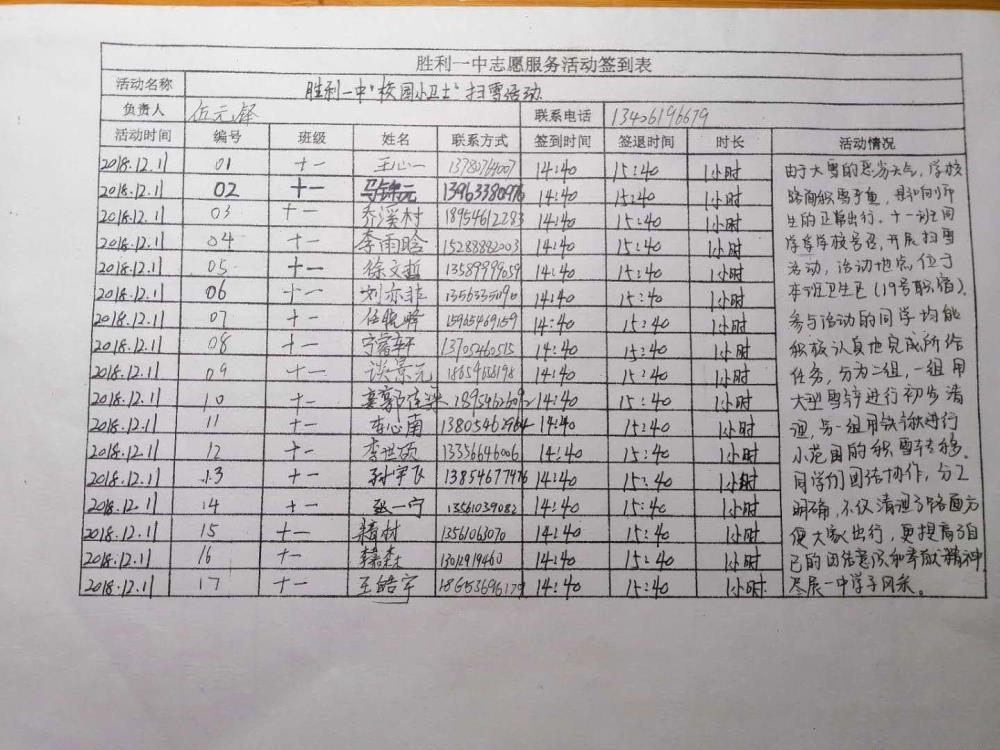 胜利一中志愿服务活动签到表
活动名称 胜利一中“校园小卫士”扫雪活动
负责人 伍元铎 联系电话 13406196679
活动时间 编号 班级 姓名 联系方式 签到时间 签退时间 时长 活动情况
2018.12.11 01 十一 王心一 13780764007 14:40 15:40 1小时
2018.12.11 02 十一 马锦元 13963380976 14:40 15:40 1小时
2018.12.11 03 十一 乔溪村 18954612283 14:40 15:40 1小时
2018.12.11 04 十一 李雨晗 15288882003 14:40 15:40 1小时
2018.12.11 05 十一 徐文哲 13589999059 14:40 15:40 1小时
2018.12.11 06 十一 刘亦菲 14:40 15:40 1小时
2018.12.11 07 十一 任晓峰 15965469159 14:40 15:40 1小时
2018.12.11 08 十一 宁睿轩 13705460515 14:40 15:40 1小时
2018.12.11 09 十一 谈景元 14:40 15:40 1小时
2018.12.11 10 十一 14:40 15:40 1小时
2018.12.11 11 十一 车心南 13805462964 14:40 15:40 1小时
2018.12.11 12 十一 李世硕 13356646006 14:40 15:40 1小时
2018.12.11 13 十一 孙宇飞 13854677476 14:40 15:40 1小时
2018.12.11 14 十一 张一宁 13561039082 14:40 15:40 1小时
2018.12.11 15 十一 13561063070 14:40 15:40 1小时
2018.12.11 16 十一 14:40 15:40 1小时
2018.12.11 17 十一 王皓宇 14:40 15:40 1小时
由于大雪的恶劣天气,学校
路面积雪严重,影响师
生的正常出行。十一班同
学响应学校号召,开展扫雪
活动,活动地点位于
本班卫生区(19号职宿)。
参与活动的同学均能
积极认真地完成所给
任务,分为二组,一组用
大型雪铲进行初步清
理,另一组用铁锹进行
小范围的积雪转移。
同学们团结协作,分工
明确,不仅清理了路面方
便大家出行,更提高了自
己的团结意识和奉献精神,
尽展一中学子风采。